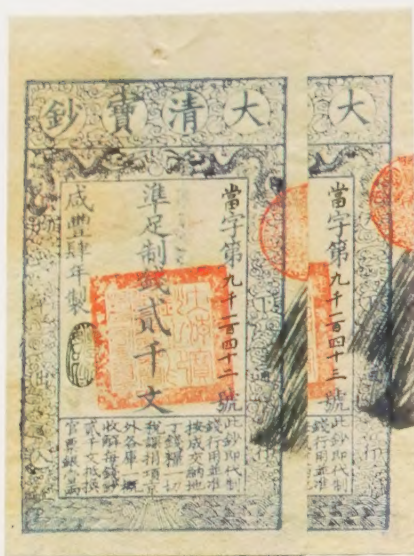 大清寶鈔
當字第九千一百四十二號
準足制錢貳千文
咸豐肆年製
此鈔即代制
錢行用並准
按成交納地
丁錢糧一切
稅課捐項京
外各庫一概
收解每錢鈔
貳千文抵換
官票銀壹兩
大
當字第九千一百四十三號
此鈔即代制
錢行用並准